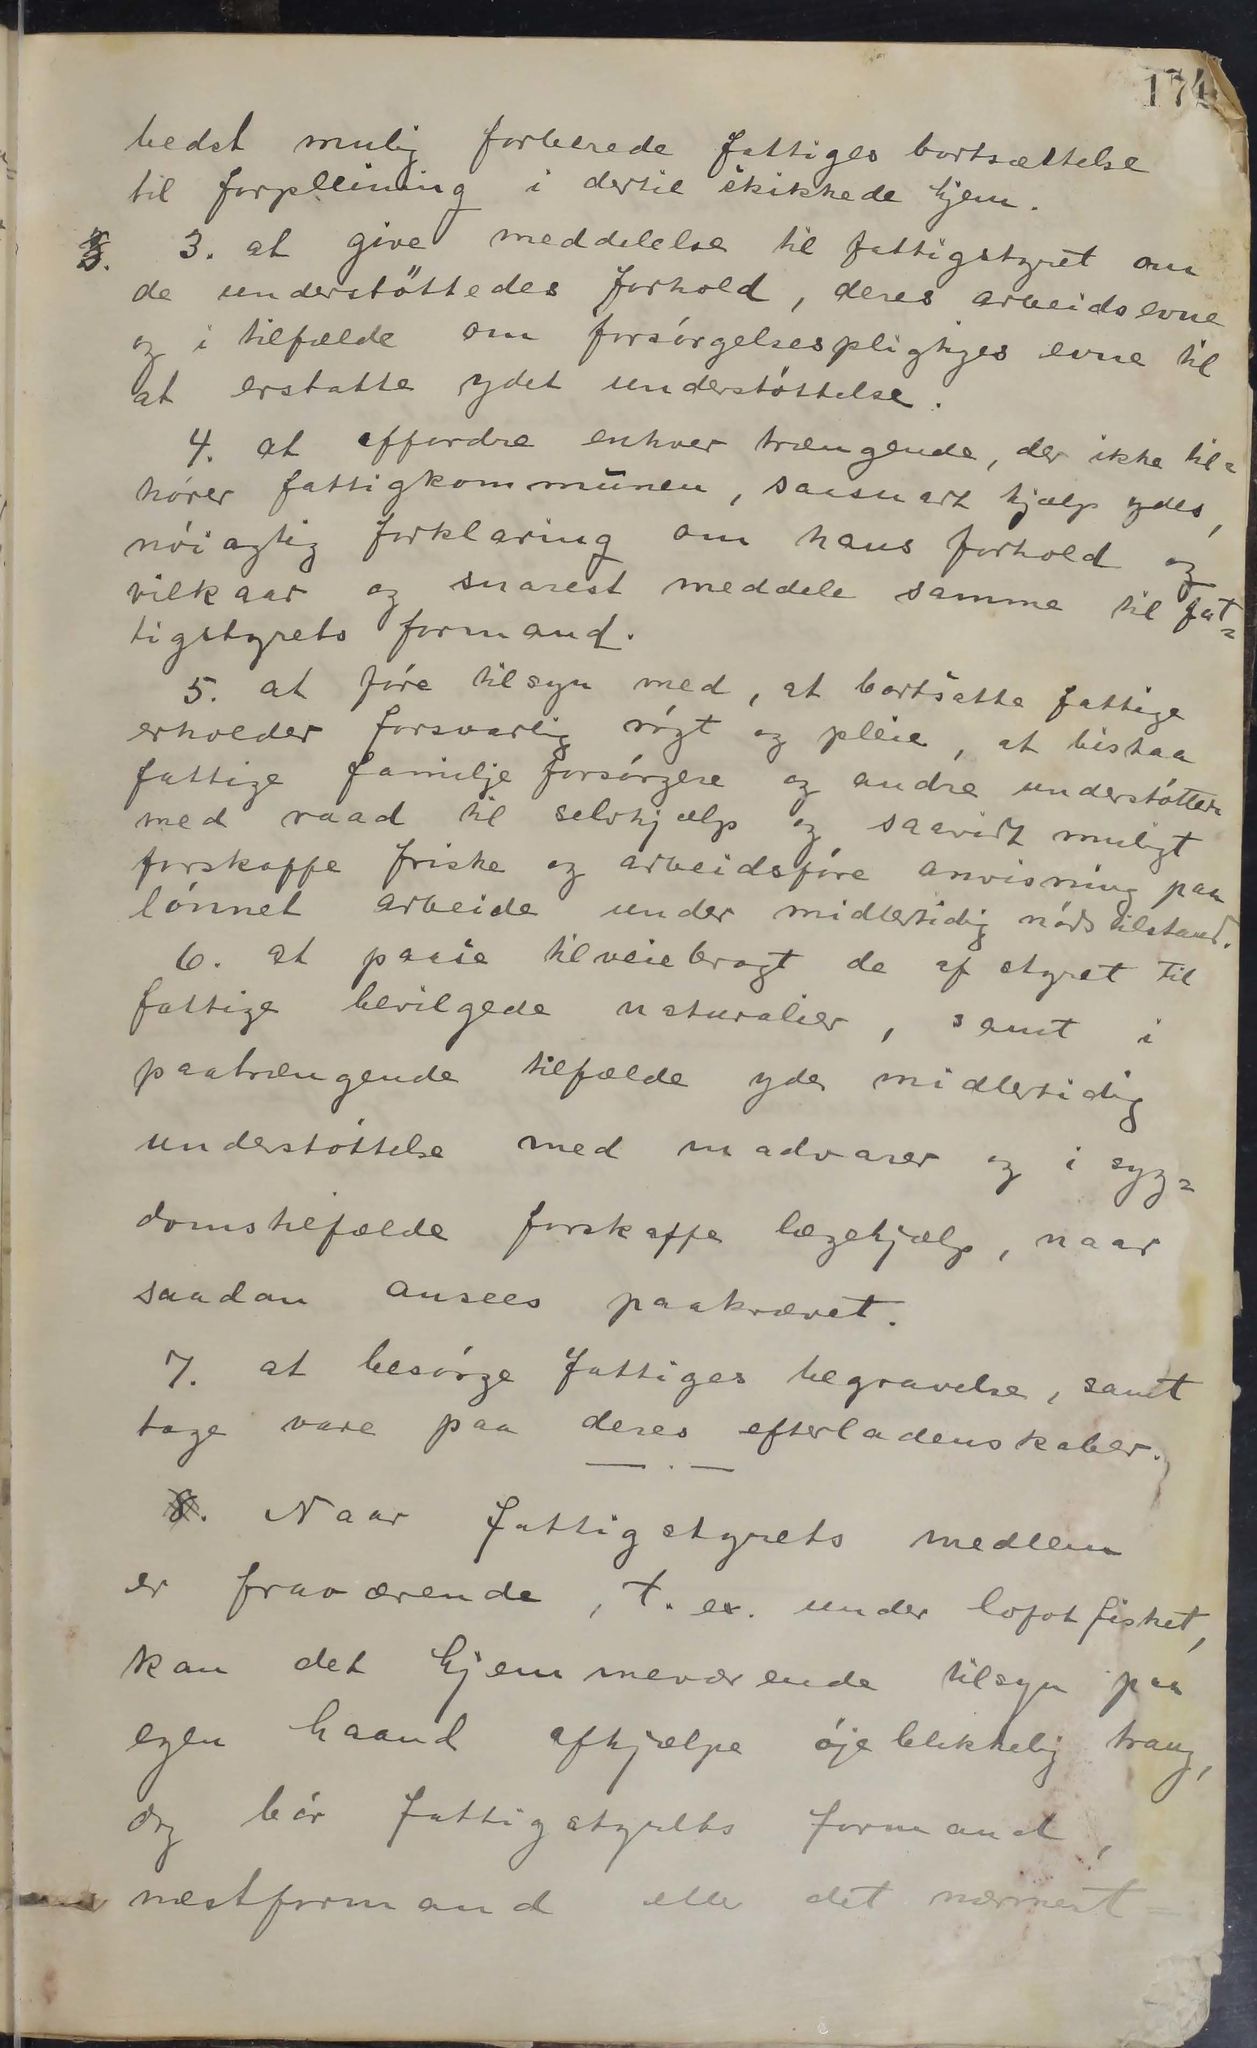 174
bedst mulig forberede fattiges bortsættelse
til forpleining i dertil skikkede hjem.
3. at give meddelelse til fattigstyret om
de understöttedes forhold, deres arbeidsevne
og i tilfælde om forsórgelsespligtiges evne til
at erstatte ydet understóttelse.
4. at affordre enhver trængende, der ikke til=
hórer fattigkommunen, saasnart hjælp ydes,
nóiagtig forklaring om hans forhold og
vilkaar og snarest meddele samme til fat=
tigstyrets formand.
5. at fóre tilsyn med, at bortsatte fattige
erholder forsvarlig rógt og pleie, at bistaa
fattige familjeforsórgere og andre understóttede
med raad til selvhjælp og saavidt muligt
forskaffe friske og arbeidsfóre anvisning paa
lónnet arbeide under midlertidig nódstilstand.
6. at paase tilveiebragt de af styret til
fattige bevilgede naturalier, samt i
paatrængende tilfælde yde midlertidig
understóttelse med madvarer og i syg=
domstilfælde forskaffe lægehjælp, naar
saadan ansees paakrævet.
7. at besórge fattiges begravelse, samt
tage vare paa deres efterladenskaber.
8. Naar fattigstyrets medlem
er fraværende, t. ex. under lofotfisket,
kan det hjemmeværende tilsyn paa
egen haand afhjælpe ójeblikkelig trang,
dog bór fattigstyrets formand,
næstformand eller det nærmest=